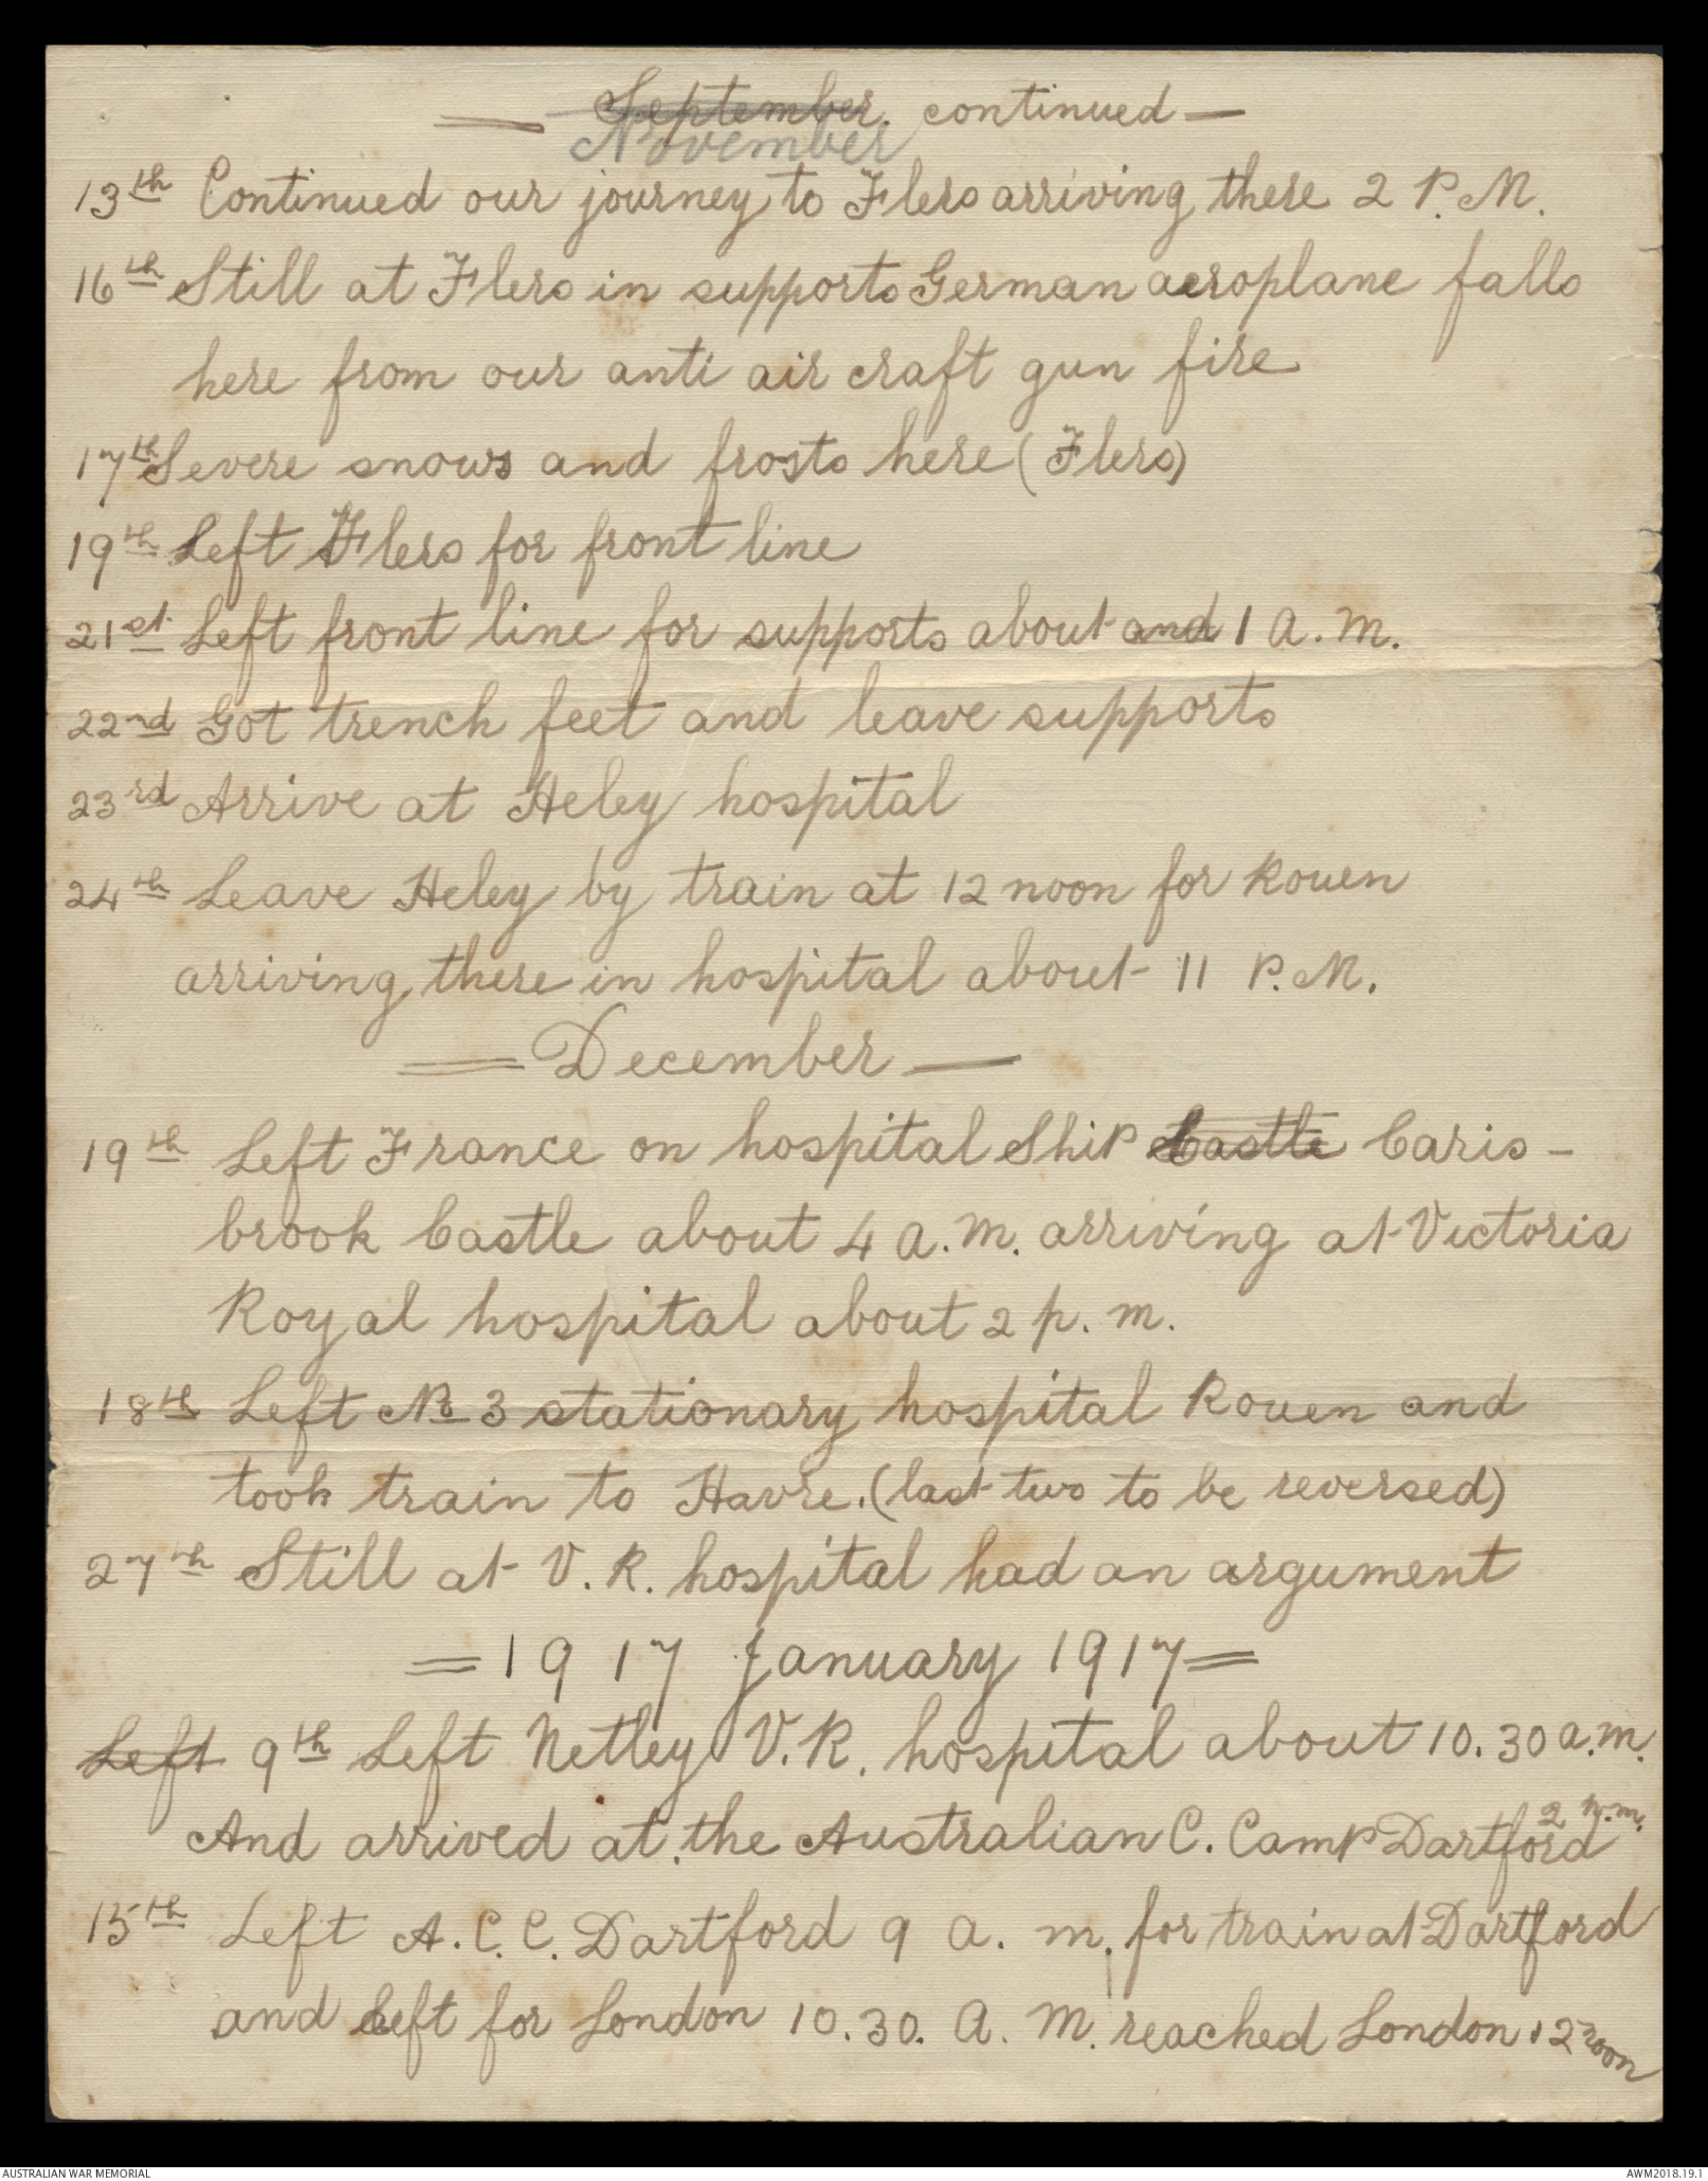 — September continued —
November
13th Continued our journey to Flers arriving there 2 P.M.
16th Still at Flers in supports German aeroplane falls
here from our anti air craft gun fire
17th Severe snows and frosts here (Flers)
19th Left Flers for front line
21st Left front line for supports about and 1 A.M.
22nd Got trench feet and leave supports
23rd Arrive at Heley hospital
24th Leave Heley by train at 12 noon for Rouen
arriving there in hospital about 11 P.M.
= December —
19th Left France on hospital Ship Castle Caris-
brook Castle about 4 A.M. arriving at Victoria
Royal hospital about 2 p.m.
18th Left No 3 stationary hospital Rouen and
took train to Havre. (last two to be reversed)
27th Still at V.R. hospital had an argument
= 1917 January 1917 =
Left 9th Left Netley V.R. hospital about 10.30 a.m.
And arrived at the Australian C. Camp Dartford 2 p.m.
15th Left A.C.C. Dartford 9 a.m. for train at Dartford
and left for London 10.30. A.M. reached London 12 noon
AUSTRALIAN WAR MEMORIAL
AWM2018.19.1